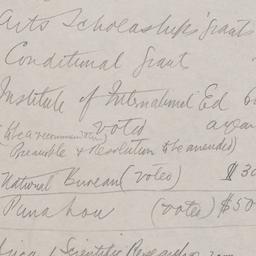 Arts Scholarships grants
Conditional Grant
Institute of International Ed
voted
Preamble & Resolution to be amended)
National Bureau (voted) $30
Punahou (voted) $50
Scientific Research